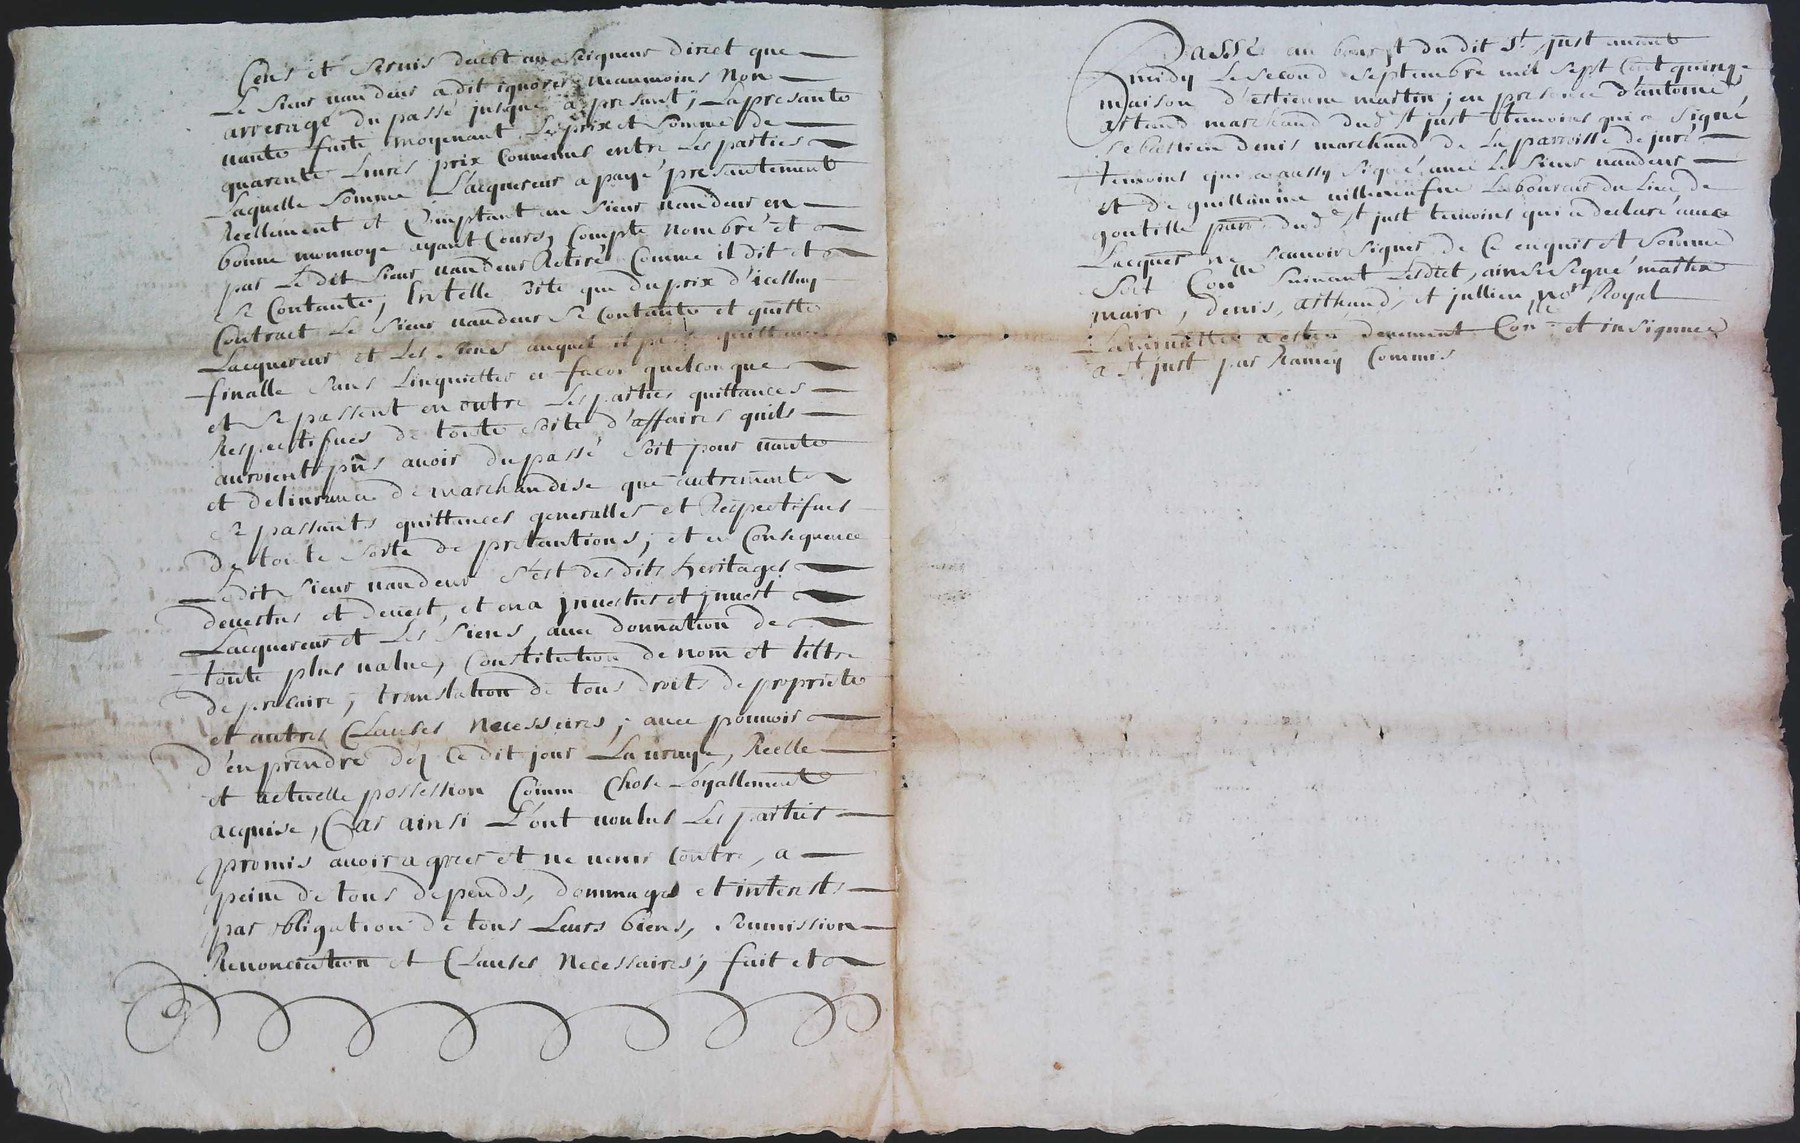 Cens et servis deubt au seigneur direct que
Le sieur vandeur a dit ignorer neaumoins non
arreragé du passé jusque a presant; La presante
vante faite moyenant Le prix et somme de
quarente Livres prix convenus entre Les parties
Laquelle somme L'acquereur a payé presantement
Reellement et Comptant au sieur vandeur en
bonne monnoye ayant Cours, Compté nombré et
par Le dit sieur vandeur Retiré Comme il dit et
se Contante, En telle sorte que du prix d'icelluy
Contract Le sieur vandeur se Contante et quitte
Lacquereur et Les siens auquel il passe quittance
finalle sans Linquietter en facon quelconque
et se passent en outre Les parties quittances
Respectifves de toutte sorte d'affaires quils
auroient pûs avoir du passé soit pour vante
et delivrance de marchandise que autrement
se passants quittances generalles et Respectifves
De toute sorte de pretantions; et en Consequence
Ledit sieur vandeur s'est des dits heritages
devestus et devest, et en a jnvestus et jnvest
Lacquereur et Les siens, avec donnation de
toute plus value, Constitution de nom et tiltre
de precaire, translation de tous droits de proprieté
et autres Clauses necessaires; avec pouvoir
d'en prendre déz Ce dit jour La vraye, Reelle
et actuelle possession Comm Chose Loyallement
acquise, Car ainsi L'ont voulus Les parties
promis avoir agreer et ne venir Contre, a
peine de tous depends, dommages et interests
par obligation de tous Leurs biens, soumission
Renonciation et Clauses necessaires; fait et
Passé au bourgt du dit St just avant
midy Le second septembre mil sept Cent quinze
maison d'estienne martin; en presence d'antoine
artaud marchand dud St just temoins qui a signé
sebastien denis marchand de La parroisse de juré
temoins qui a aussy signé avec Le sieur vandeur
et de guillaume villeneufve Laboureur du Lieu de
gontille parr dud St just temoins qui a declaré avec
Lacquer ne scavoir signer de Ce enquis et sommé
soit Conllé suivant Ledict, ainsi signé mattia
maire, denis, arthaud, et jullien nore Royal
La minutte a estée deuement Conllé et insignuee
a St just par Ramey Commis